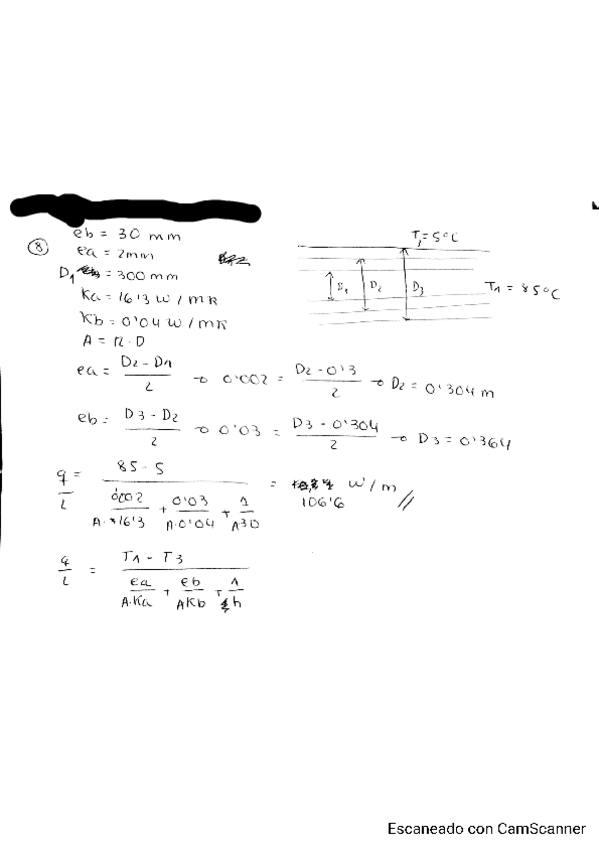 8
eb = 30 mm
ea = 2mm
D1 = 300 mm
Ka = 16'3 W / mK
Kb = 0'04 W / mK
A = π · D
T3 = 5°C
D1 D2 D3
T1 = 85°C
ea = (D2 - D1) / 2 → 0'002 = (D2 - 0'3) / 2 → D2 = 0'304 m
eb = (D3 - D2) / 2 → 0'03 = (D3 - 0'304) / 2 → D3 = 0'364
q / L = (85 - 5) / (0'002 / (A · 16'3) + 0'03 / (A · 0'04) + 1 / (A 30)) = W / m
106'6
q / L = (T1 - T3) / (ea / (A·Ka) + eb / (A Kb) + 1 / h)
Escaneado con CamScanner